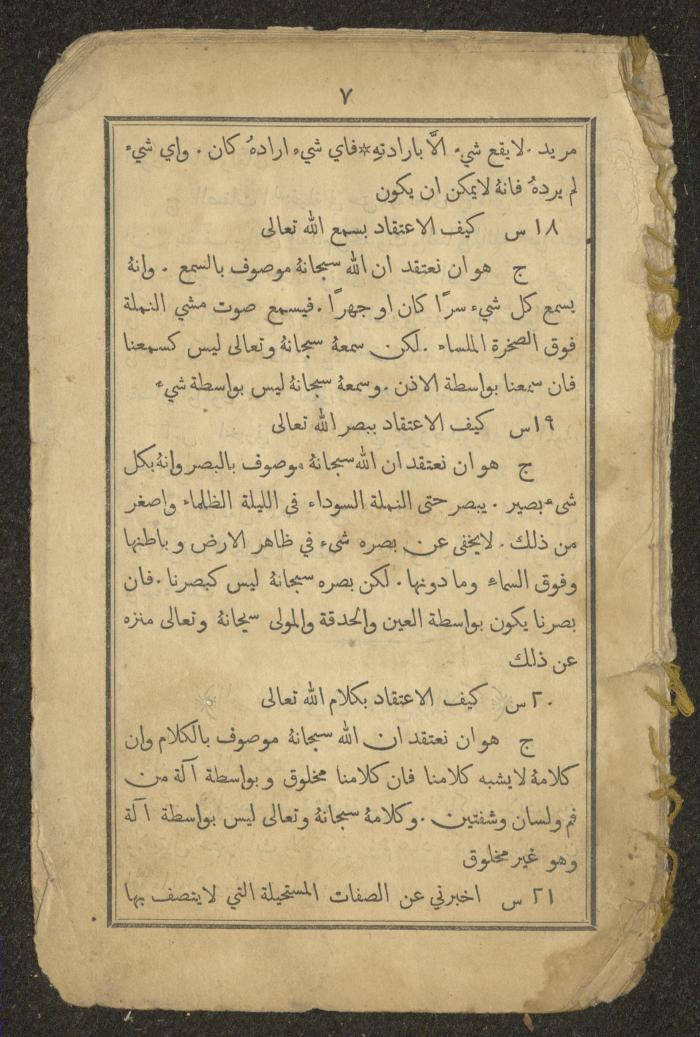 ٧
مريد . لايقع شيء الَّا بارادتهِ * فاي شيء ارادهُ كان . واي شيء
لم يردهُ فانهُ لا يمكن ان يكون
١٨ س كيف الاعتقاد بسمع الله تعالى
ج هو ان نعتقد ان الله سبحانهُ موصوف بالسمع . وانهُ
يسمع كل شيء سرًا كان او جهرًا . فيسمع صوت مشي النملة
فوق الصخرة الملساء . لكن سمعهُ سبحانهُ وتعالى ليس كسمعنا
فان سمعنا بواسطة الاذن . وسمعهُ سبحانهُ ليس بواسطة شيء
١٩ س كيف الاعتقاد ببصر الله تعالى
ج هو ان نعتقد ان الله سبحانهُ موصوف بالبصر وانهُ بكل
شىء بصير . يبصر حتى النملة السوداء في الليلة الظلماء واصغر
من ذلك . لايخفى عن بصره شيء في ظاهر الارض وباطنها
وفوق السماء وما دونها . لكن بصره سبحانهُ ليس كبصرنا . فان
بصرنا يكون بواسطة العين والحدقة والمولى سبحانهُ وتعالى منزه
عن ذلك
٢٠ س كيف الاعتقاد بكلام الله تعالى
ج هو ان نعتقد ان الله سبحانهُ موصوف بالكلام وان
كلامهُ لا يشبه كلامنا فان كلامنا مخلوق وبواسطة آلة من
فم ولسان وشفتين . وكلامهُ سبحانهُ وتعالى ليس بواسطة آلة
وهو غير مخلوق
٢١ س اخبرني عن الصفات المستحيلة التي لا يتصف بها